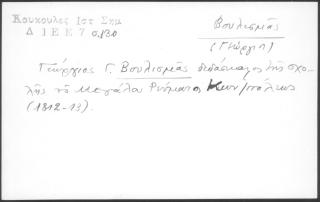 Κουκουλες Ιστ Σημ
Δ Ι Ε Ε 7 σ.830
Βουλισμᾶς
(Γεώργιος)
Γεώργιος Γ. Βουλισμᾶς διδάσκαλος τῆς σχο-
λῆς τοῦ Μεγάλου Ρεύματος Κων/πόλεως
(1812-13).